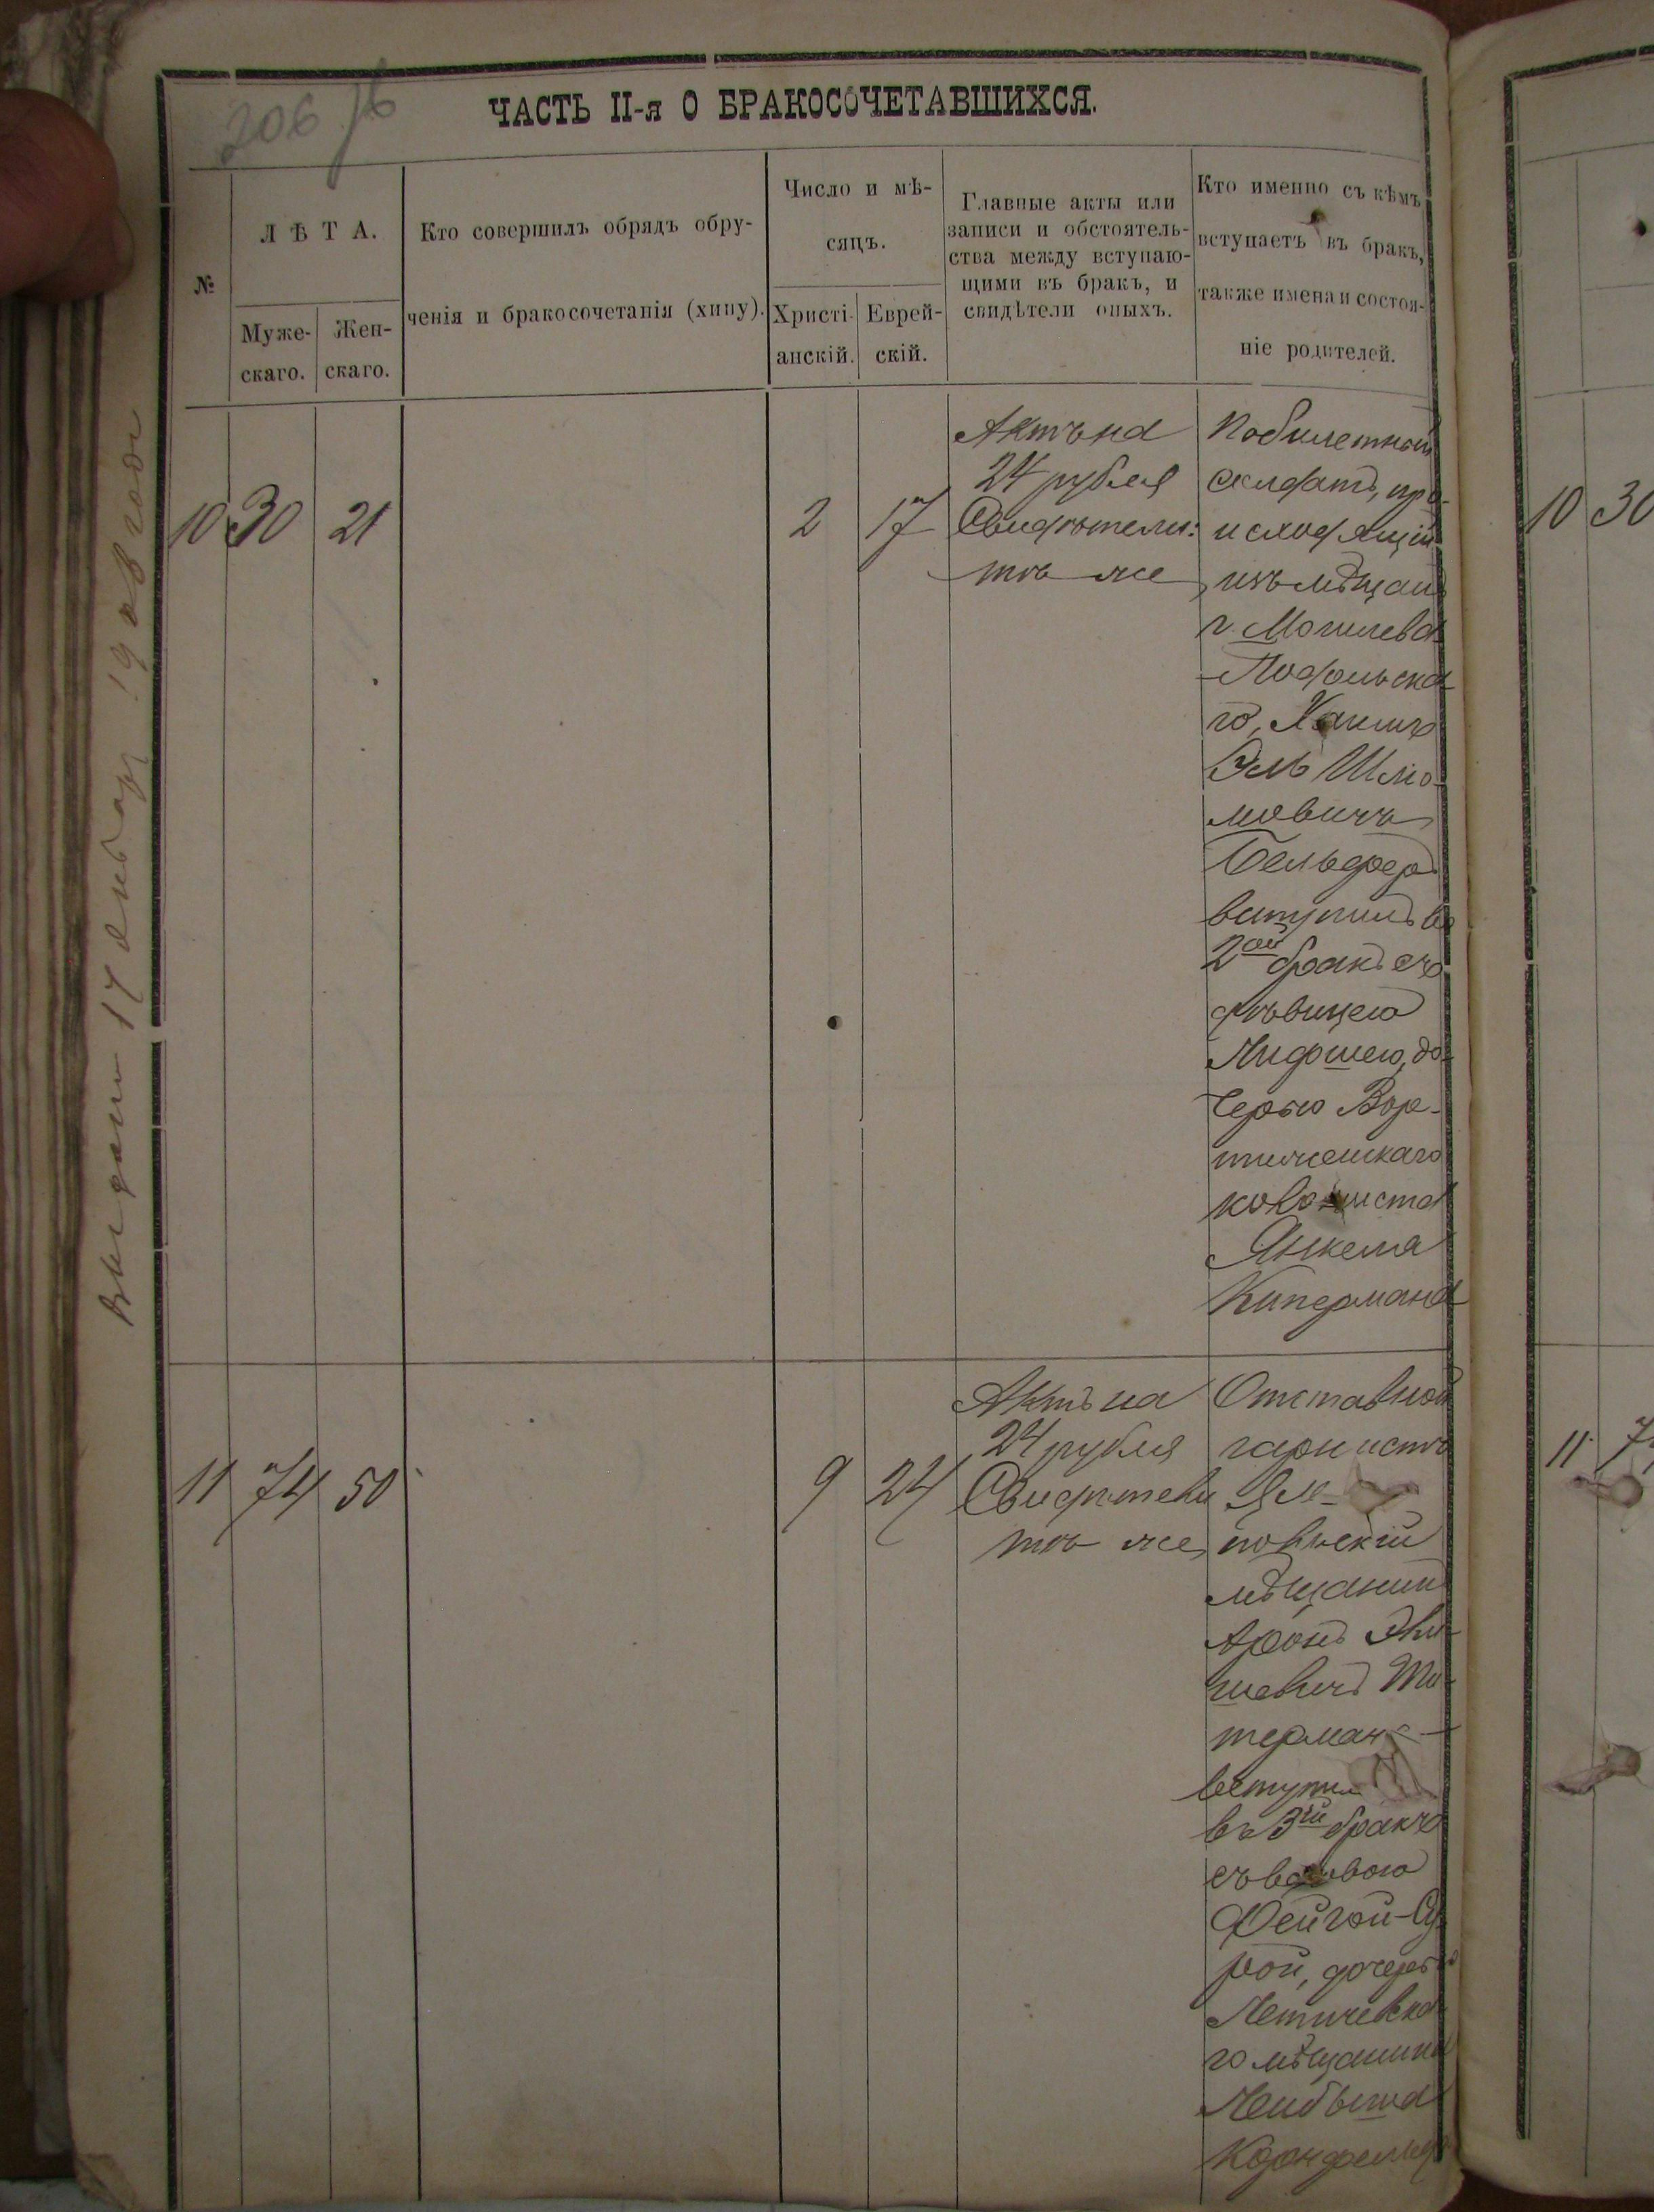 206 76
ЧАСТЬ II-я О БРАКОСОЧЕТАВШИХСЯ.
№
ЛѢТА.
Муже-
скаго.
Жен-
скаго.
Кто совершилъ обрядъ обру-
ченія и бракосочетанія (хипу).
Число и мѣ-
сяцъ.
Христі-
анскій.
Еврей-
скій.
Главные акты или
записи и обстоятель-
ства между вступаю-
щими въ бракъ, и
свидѣтели оныхъ.
Кто именно съ кѣмъ
вступаетъ въ бракъ,
также имена и состоя-
ніе родителей.
10 30 21
2 17
Актъ на
24 рубля
Свидѣтели:
тѣ же
По билетный
солдатъ, про-
исходящій
изъ мѣщанъ
г. Могилева
Подольска-
го, Хаимъ
Эль Шлio-
мовичъ
Бельфер
вступилъ въ
2ой бракъ съ
дѣвицею
до-
черью Вор-
тниченскаго
колониста
Янкеля
Кипермана
11 74 50
9 24
Актъ на
24 рубля
Свидѣтели
тѣ же
Отставной
горнистъ
Ям-
польскій
мѣщанинъ
Аронъ
терман
вступил
въ 3ій бракъ
съ вдовою
Фейгой-Су-
рой, дочерью
Летичевска-
го мѣщанина
Лейбыша
Корнфельд
Выдано 17 Января 1908 года
10 30
11 7